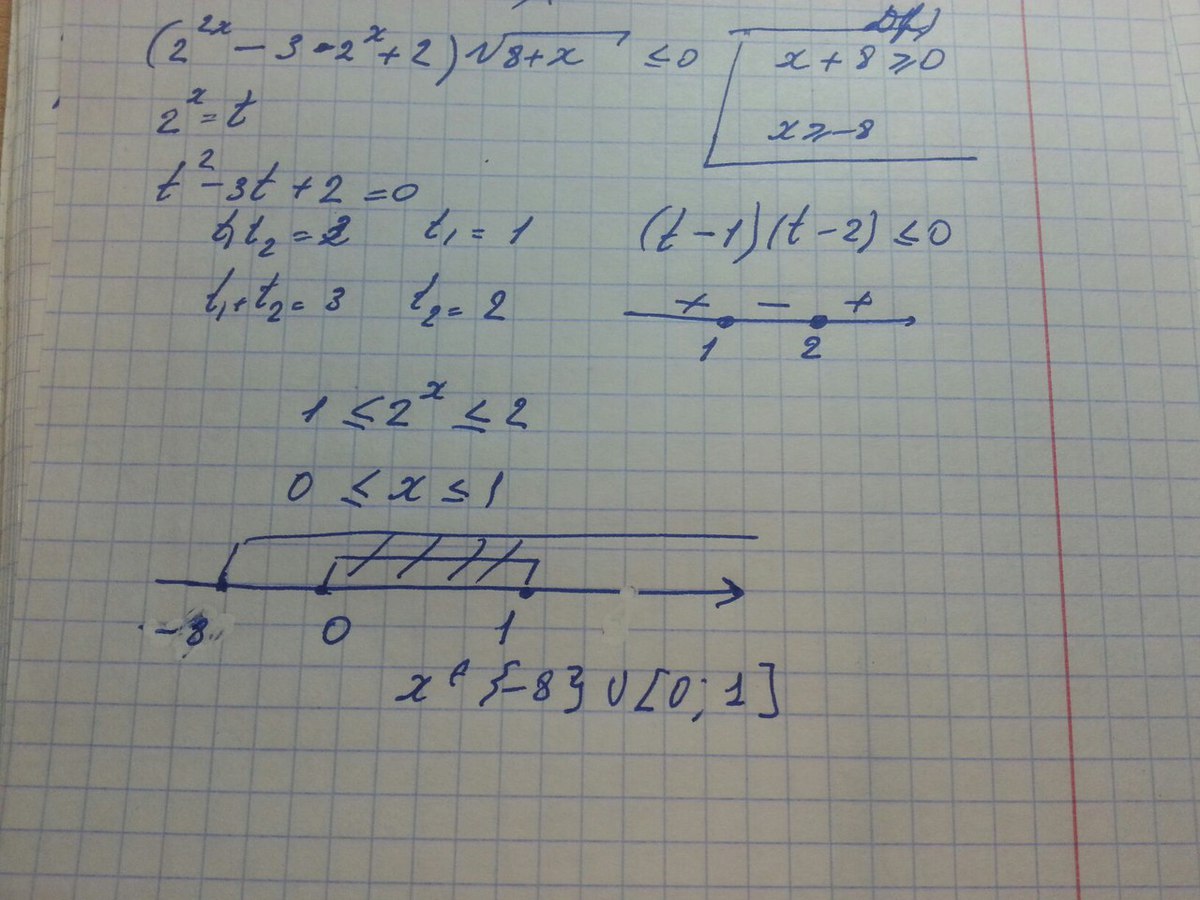 (2^{2x} - 3 · 2^x + 2) √(8+x) ≤ 0
D(f)
x + 8 ≥ 0
x ≥ -8
2^x = t
t^2 - 3t + 2 = 0
t_1 t_2 = 2 t_1 = 1
t_1 + t_2 = 3 t_2 = 2
(t - 1)(t - 2) ≤ 0
+ − +
1 2
1 ≤ 2^x ≤ 2
0 ≤ x ≤ 1
-8 0 1
x ∈ {-8} ∪ [0; 1]